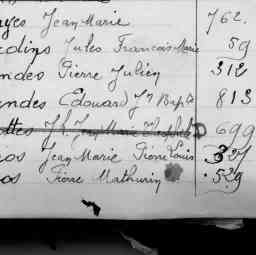 yes Jean Marie 762.
dins Jules Francois Marie 59
ndes Pierre Julien 312
endes Edouard Jn Bapte 813
ttes Jh. Jean Marie 699
os Jean Marie Pierre Louis 327
os Pierre Mathurin 539